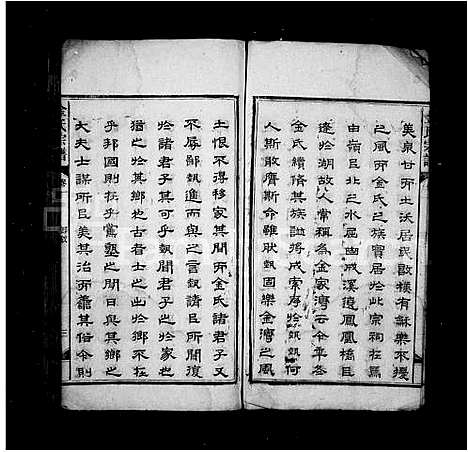 美泉甘而土沃居民敦樸有穌樂不擾
之風而金氏之族實居於此宗祠在焉
由嶺㠯北之水屈曲成溪邊鳳凰橋㠯
達於湖故人常稱為金家灣云今年各
金氏續脩其族譜將成索序於執執何
人斯奮膺斯命雖狀執固樂金灣之風
土恨不得移家其間而金氏諸君子又
不辱鄙執而與之言執諸㠯所聞復
於諸君子其可乎執聞君子之於家也
猶之於其鄉也古者士之於鄉不在
乎邦國則在乎黨塾之間日與其鄉之
大夫士謀所㠯美其治而善其俗今則
金氏宗譜